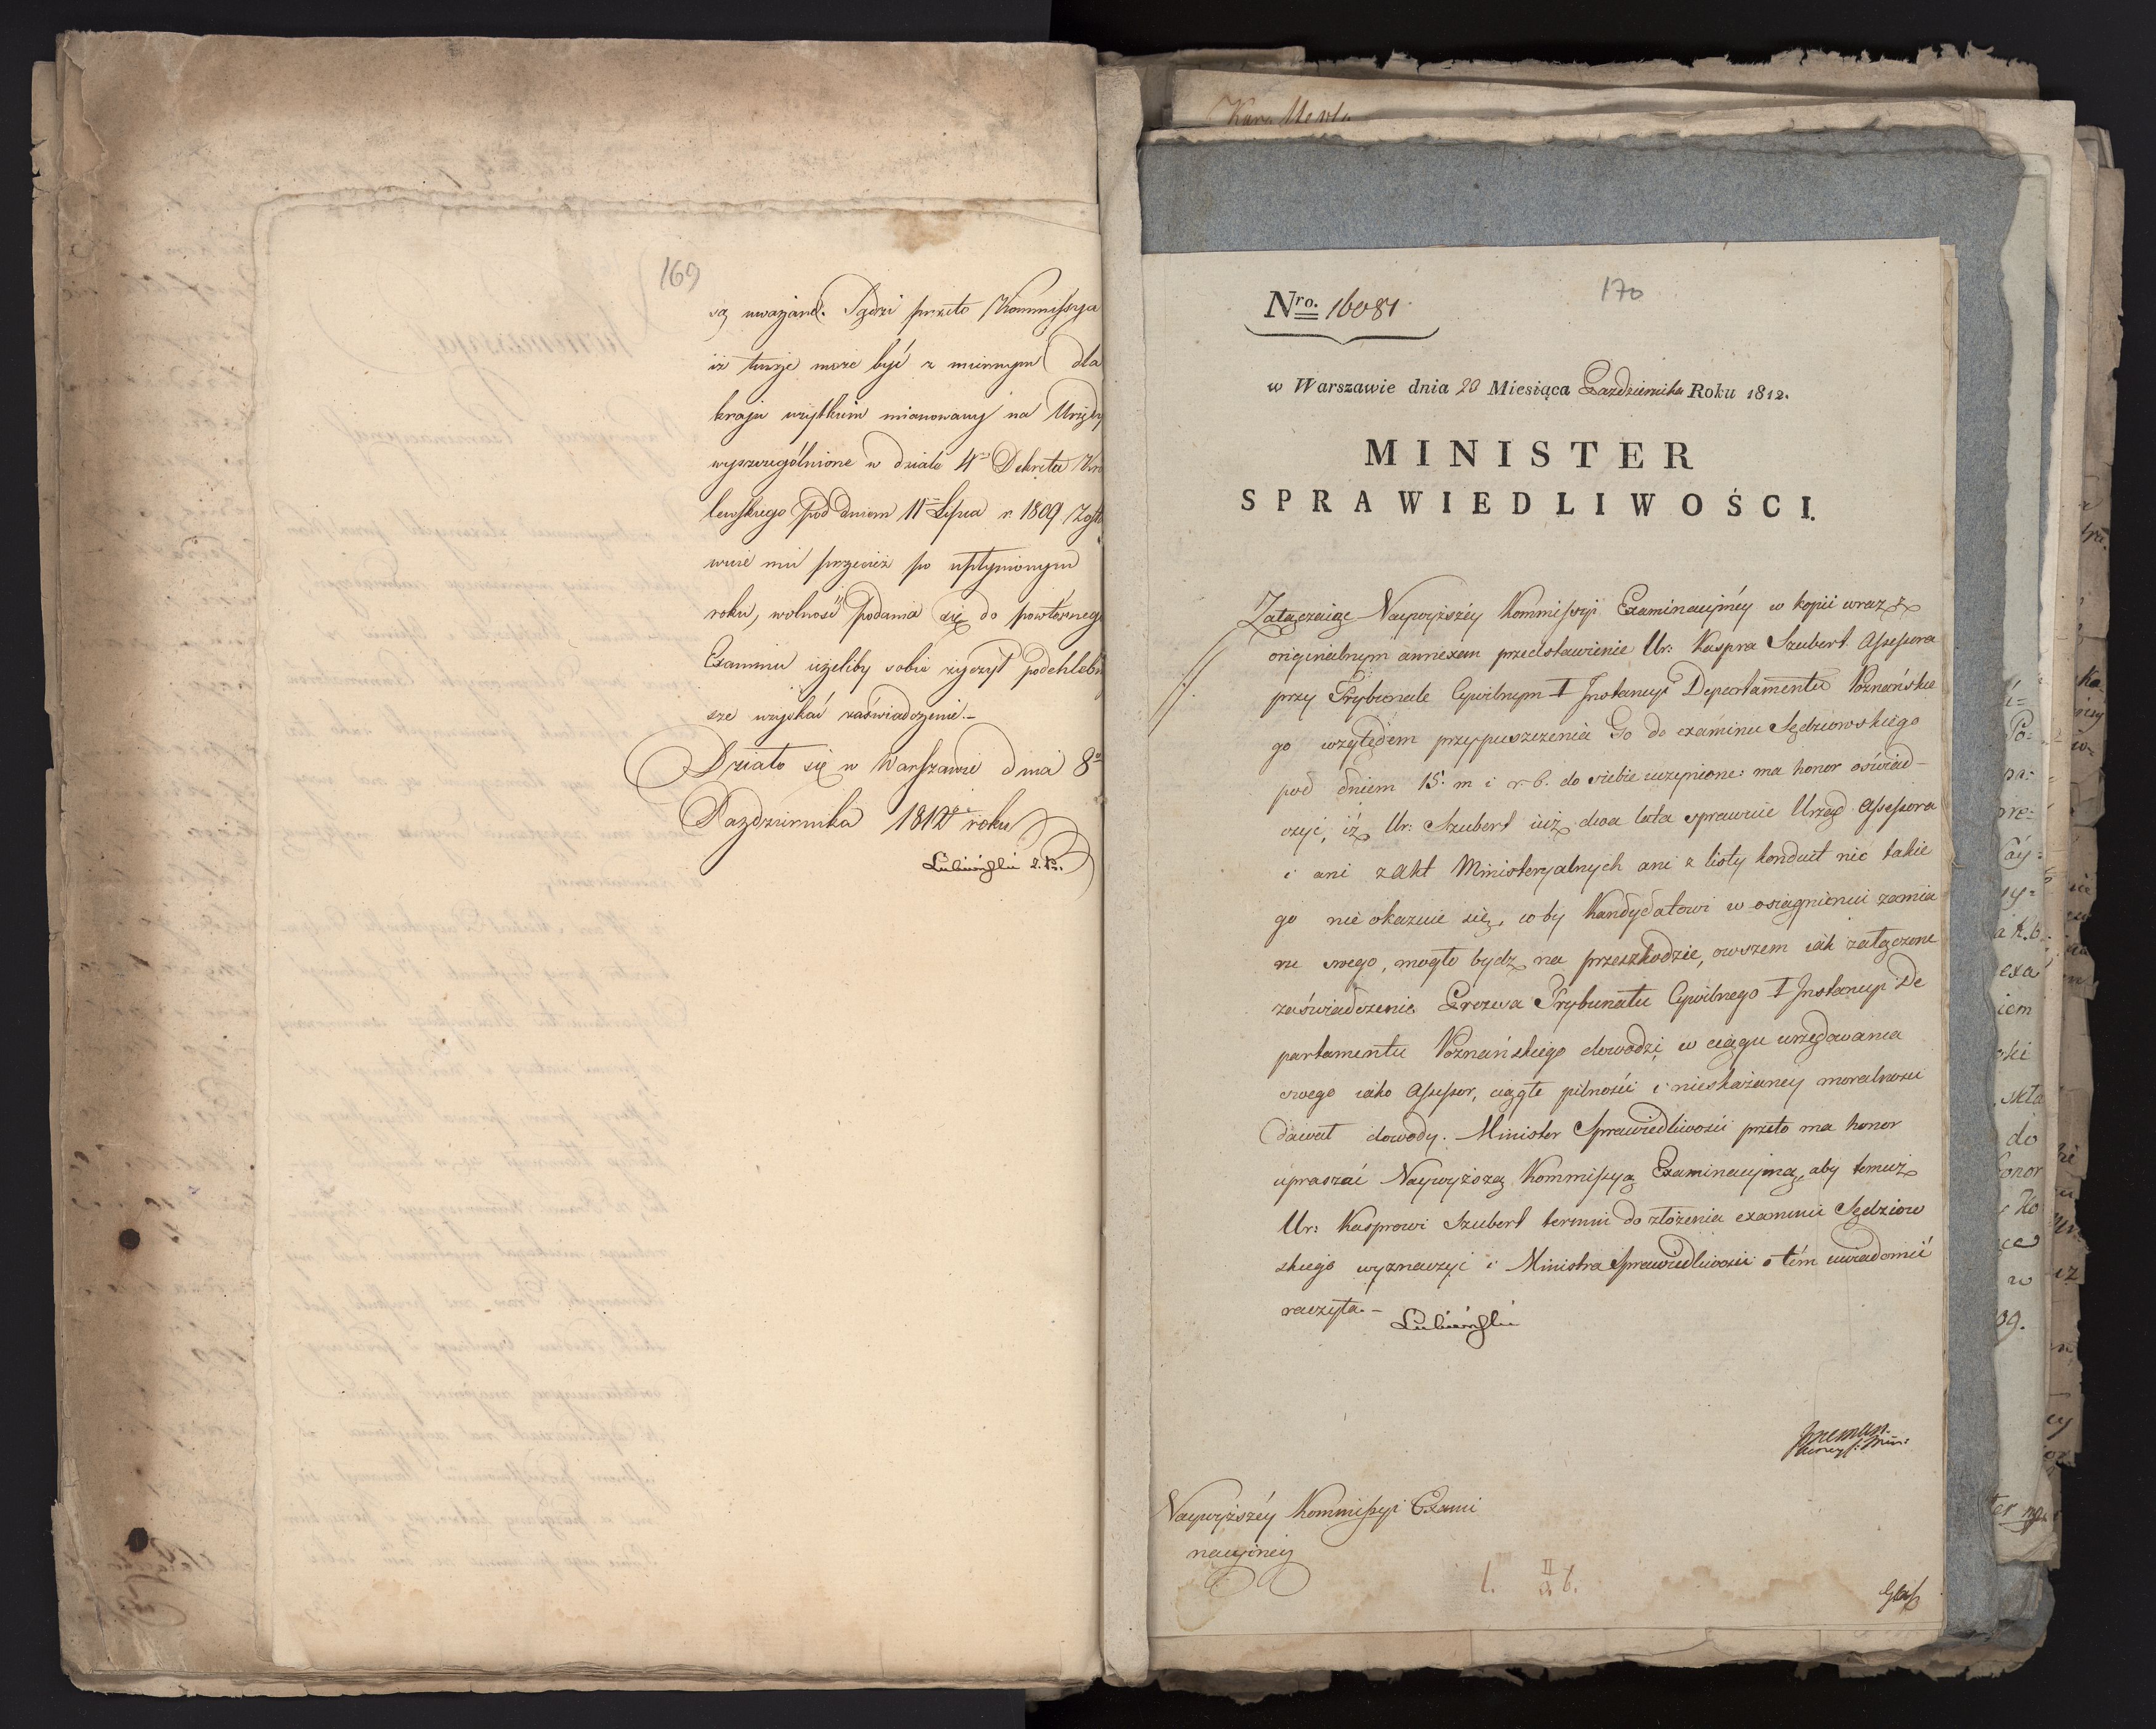 169
są uważane. Sądzi przeto Kommissya
iż tenże może być z miennym dla
kraju użytkiem mianowany na Urzędy
wyszczególnione w dziale 4m Dekretu Kró
lewskiego pod dniem 11m Lipca r. 1809. Zosta
wuie mu przecież po upłynionym
roku, wolność podania się do powtórnego
Examinu ieżeliby sobie życzył podchlebni
sze uzyskać zaświadczenie.-
Działo się w Warszawie dnia 8o
Pazdziernika 1812go roku
Lubieński
170
Nro. 16081
w Warszawie dnia 20 Miesiąca Pazdziernika Roku 1812.
MINISTER
SPRAWIEDLIWOŚCI.
Załączaiąc Naywyższéy Kommissyi Examinacyinéy w kopii wraz z
originalnym annexem przedstawienie Ur: Kaspra Szubert Assessora
przy Trybunale Cywilnym I Instancyi Departamentu Poznańskie
go względem przypuszczenia Go do examinu Sędziowskiego
pod dniem 15. m i r. b. do siebie uczynione: ma honor oświad-
czyć, iż Ur: Szubert iuż dwa lata sprawuie Urząd Assessora
i ani z Akt Ministeryalnych ani z listy konduit nic takie
go nie okazuie się, coby Kandydatowi w osiągnieniu zamia
ru swego, mogło bydź na przeszkodzie, owszem iak załączone
zaświadczenie Prezesa Trybunału Cywilnego I Instancyi De
partamentu Poznańskiego dowodzi, w ciągu urzędowania
swego iako Assessor, ciągłe pilności i nieskażoney moralności
dawał dowody. Minister Sprawiedliwości przeto ma honor
upraszać Naywyższą Kommissyą Examinacyiną, aby temuż
Ur: Kasprowi Szubert termin do złożenia examinu Sędziow
skiego wyznaczyć i Ministra Sprawiedliwości o tém uwiadomić
raczyła.-
Lubieński
Naywyższéy Kommissyi Exami
nacyiney